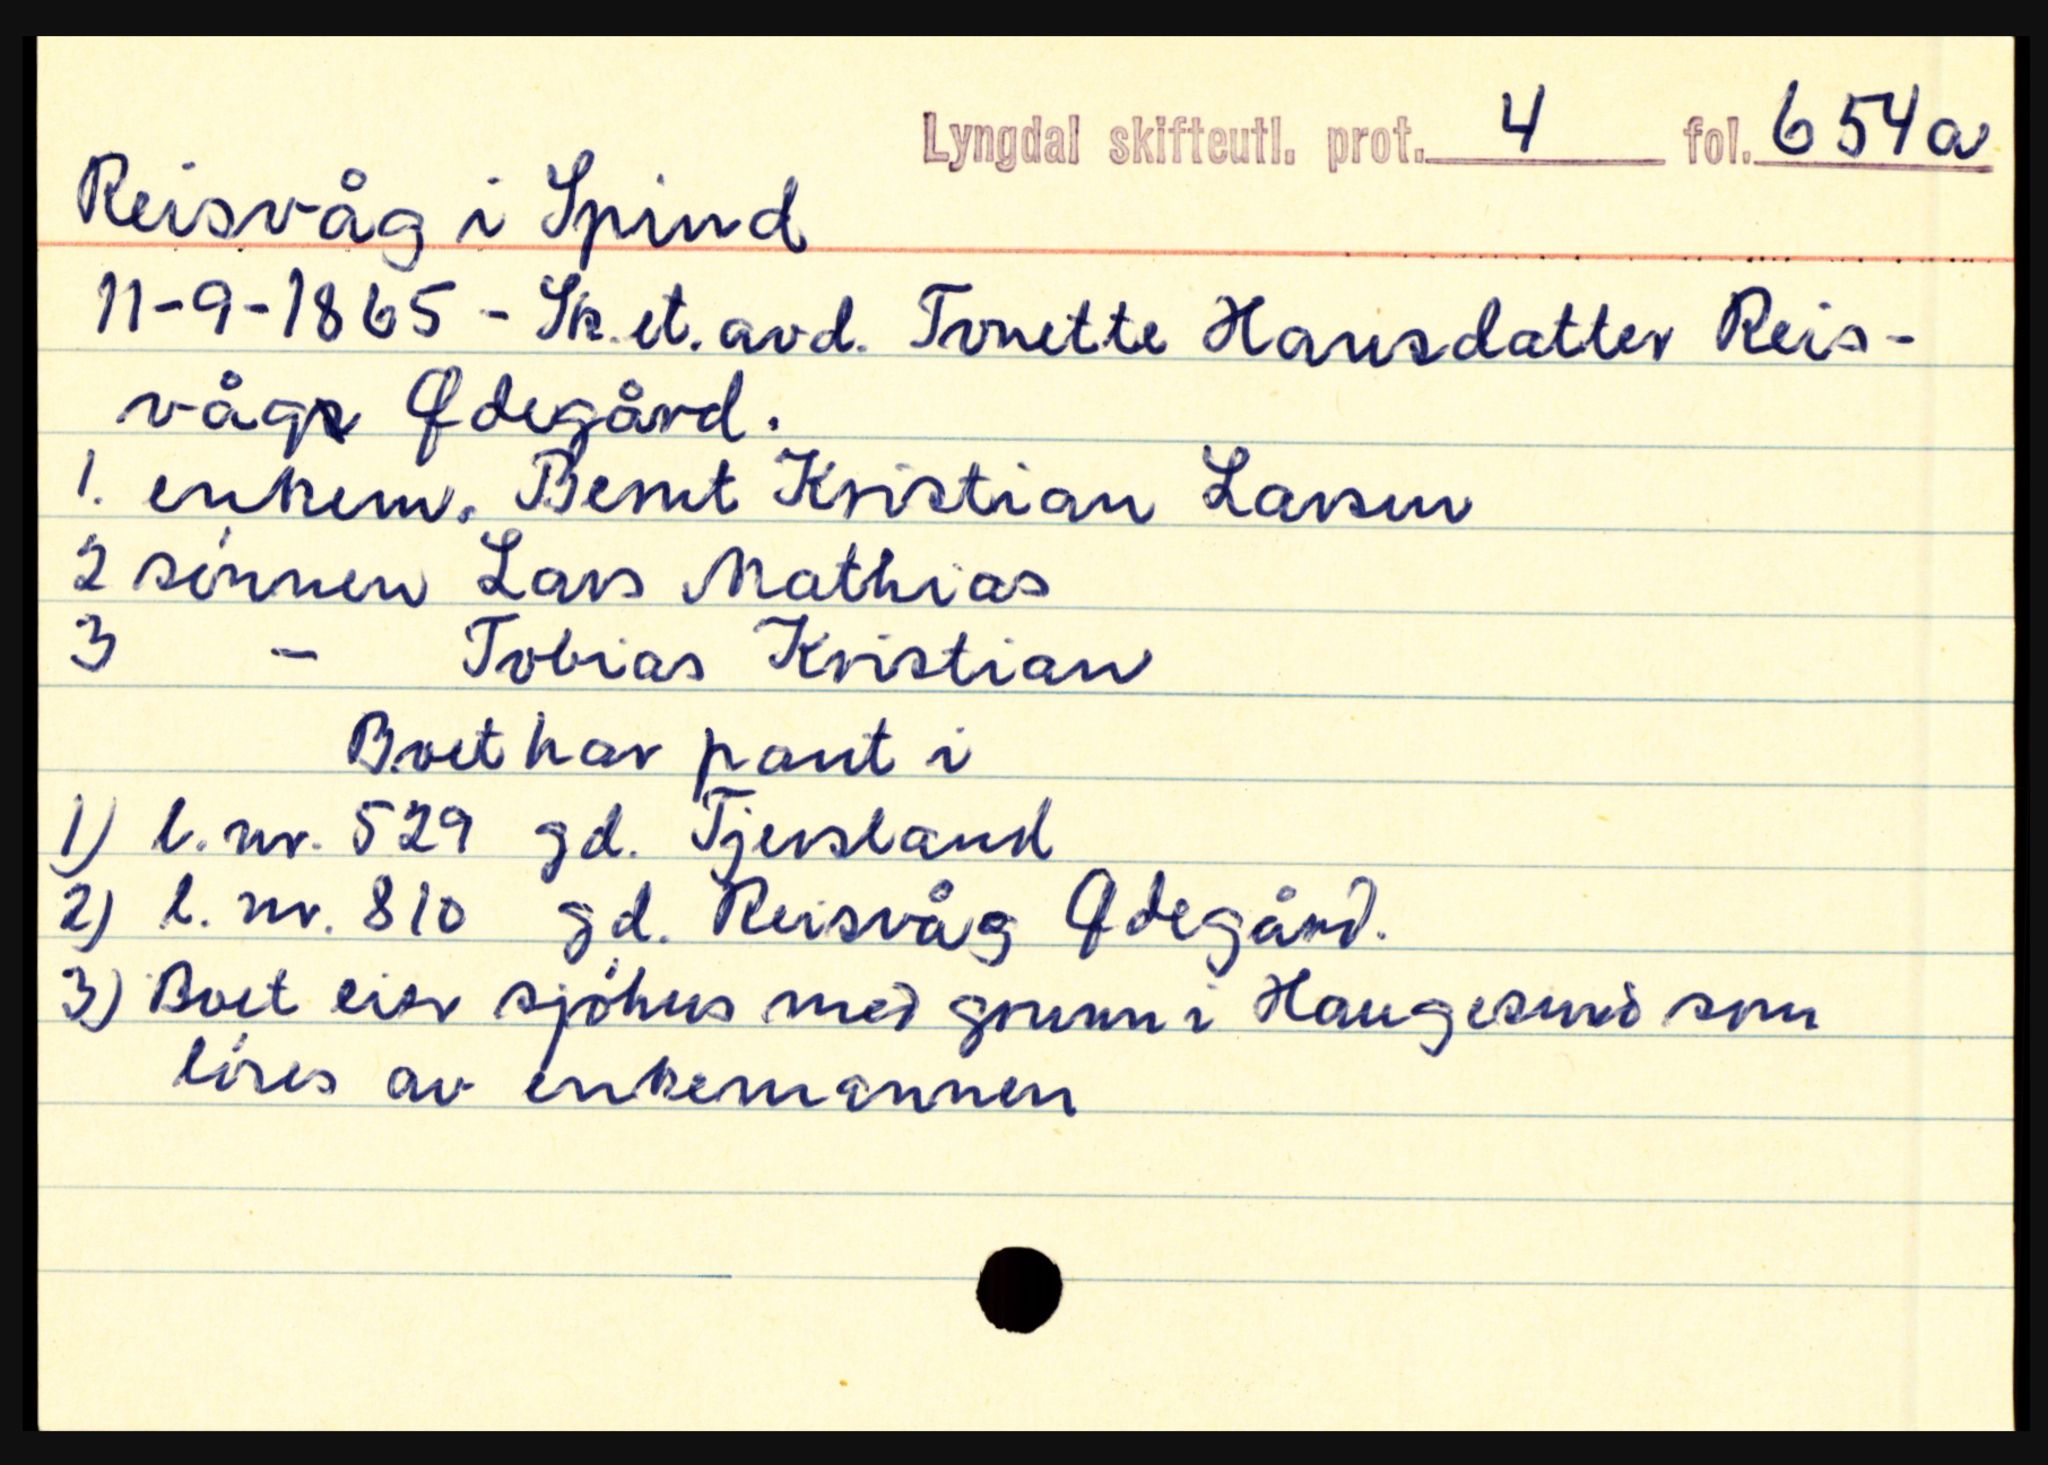 Lyngdal skifteutl. prot. 4 fol. 654a
Reisvåg i Spind
11-9-1865 - Sk. et. avd. Tonette Hansdatter Reis-
våg Ødegård.
1. enkem. Bernt Kristian Larsen
2 sönnen Lars Mathias
3 - Tobias Kristian
Boet har pant i
1) l. nr. 529 gd. Tjersland
2) l. nr. 810 gd. Reisvåg Ødegård.
3) Boet eier sjöhus med grunn i Haugesund som
löses av enkemannen